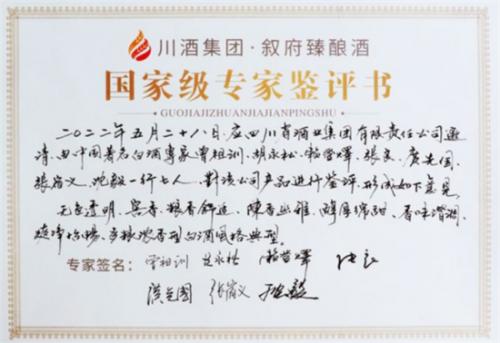 川酒集团·叙府臻酿酒
国家级专家鉴评书
GUOJIAJIZHUANJIAJIANPINGSHU
二〇二二年五月二十八日,应四川省酒业集团有限责任公司邀
请,由中国著名白酒专家曾祖训、胡永松、赖登燡、张良、
张宿义、一行七人,对该公司产品进行鉴评,形成如下意见
无色透明、窖香、粮香舒适、陈香幽雅、醇厚绵甜、香味谐调、
爽净、多粮浓香型白酒风格典型。
专家签名:曾祖训 胡永松 赖登燡 张良
张宿义